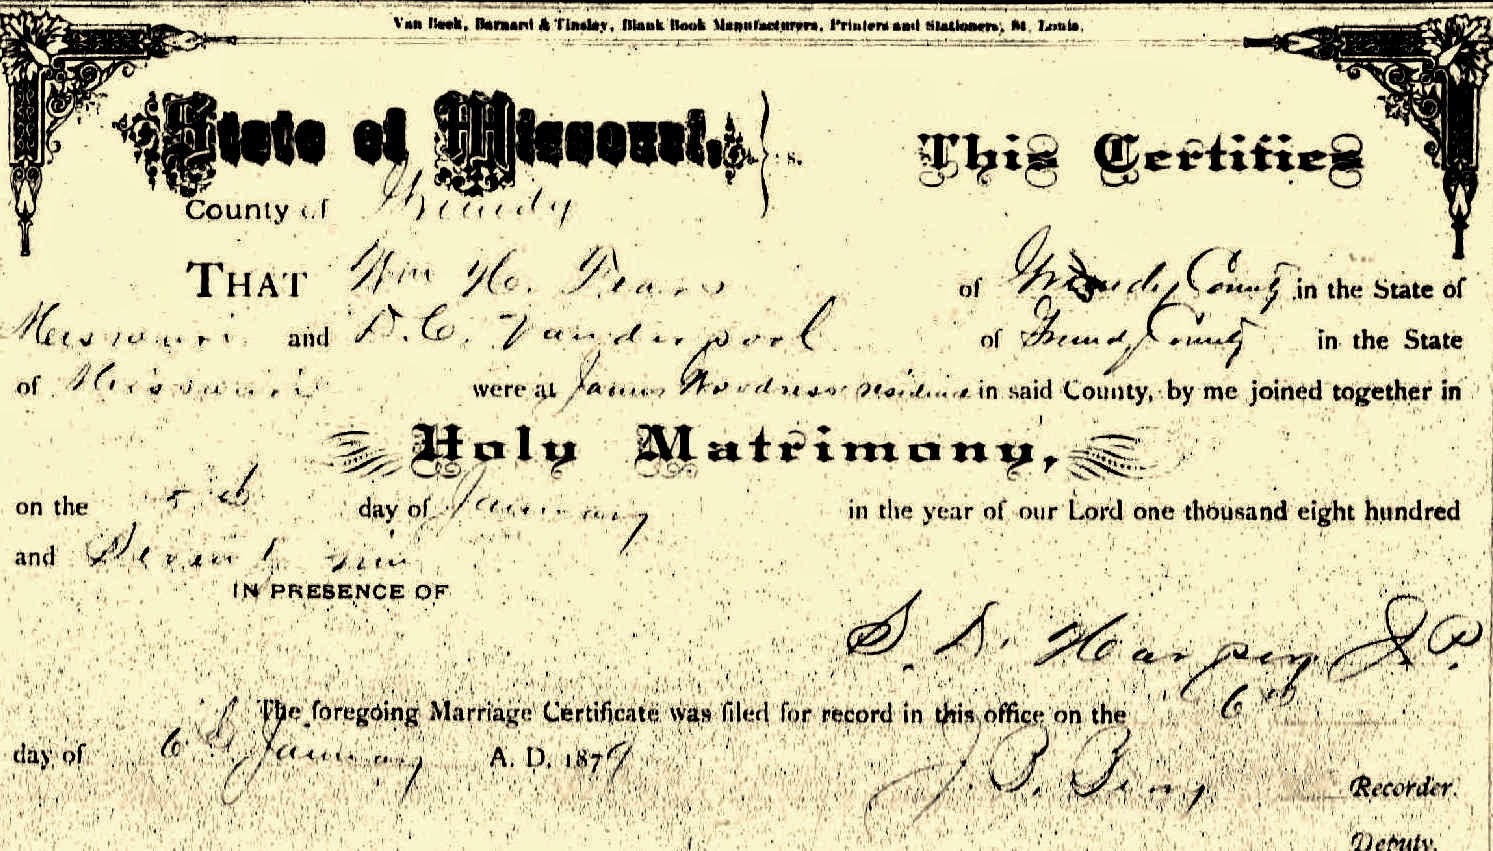 Van Beek, Barnard & Tinsley, Blank Book Manufacturers, Printers and Stationers, St. Louis.
State of Missouri, } s.
This Certifies
County of Grundy
THAT Wm H. Fears of Grundy County in the State of
Missouri and D. C. Vanderpool of Grundy County in the State
of Missouri were at James residence in said County, by me joined together in
Holy Matrimony,
on the 5th day of January in the year of our Lord one thousand eight hundred
and Seventy nine
IN PRESENCE OF
S. D. Harper J. P.
The foregoing Marriage Certificate was filed for record in this office on the 6th
day of 6th January A. D. 1879
J. B. Berry Recorder.
Deputy.